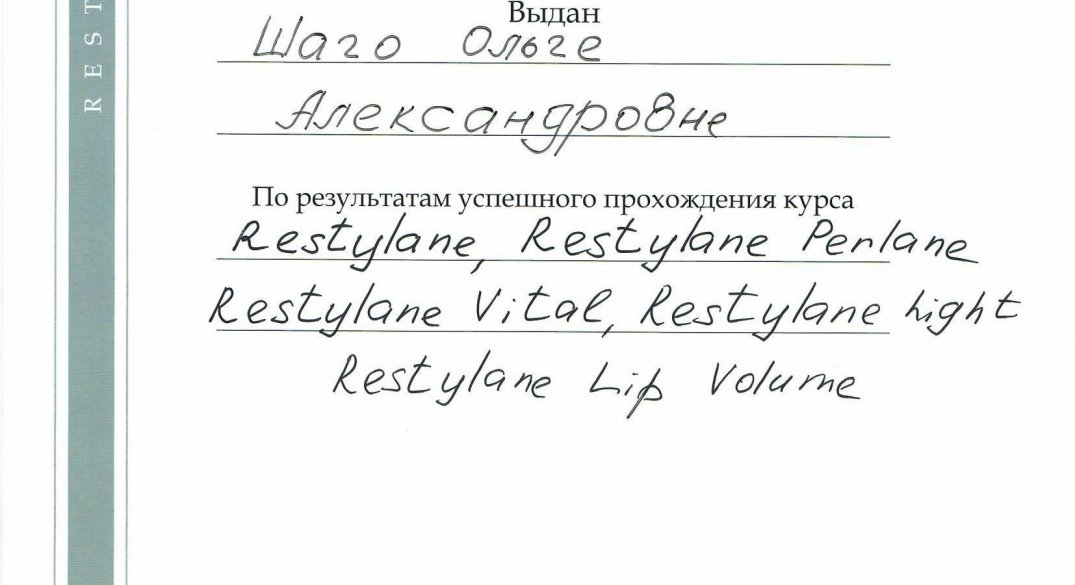 R E S T
Выдан
Шаго Ольге
Александровне
По результатам успешного прохождения курса
Restylane, Restylane Perlane
Restylane Vital, Restylane Light
Restylane Lip Volume